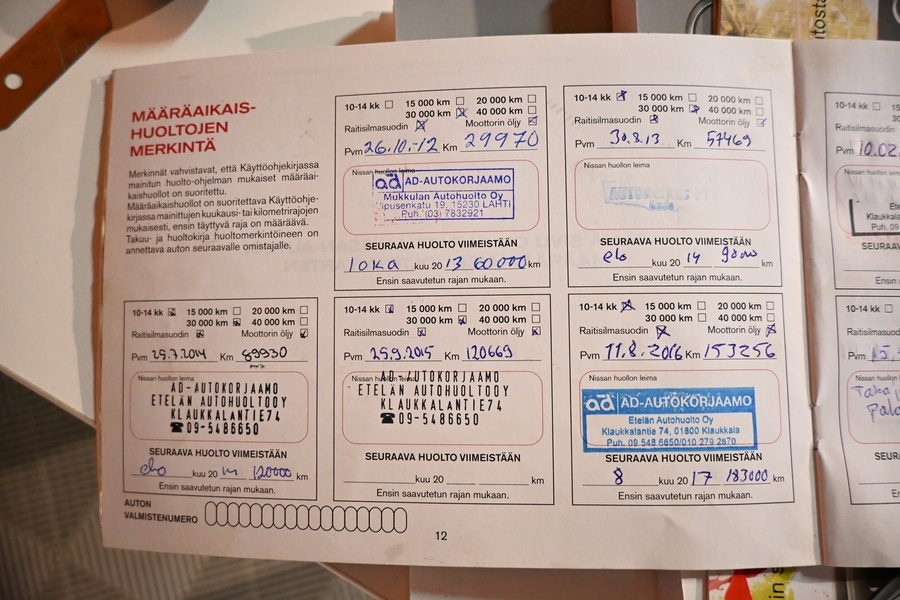 MÄÄRÄAIKAIS-
HUOLTOJEN
MERKINTÄ
Merkinnät vahvistavat, että Käyttöohjekirjassa
mainitun huolto-ohjelman mukaiset määräai-
kaishuollot on suoritettu.
Määräaikaishuollot on suoritettava Käyttöohje-
kirjassa mainittujen kuukausi- tai kilometrirajojen
mukaisesti, ensin täyttyvä raja on määräävä.
Takuu- ja huoltokirja huoltomerkintöineen on
annettava auton seuraavalle omistajalle.
10-14 kk 15 000 km 20 000 km
30 000 km 40 000 km
Raitisilmasuodin Moottorin öljy
Pvm 26.10.-12 Km 29970
Nissan huollon leima
ad AD-AUTOKORJAAMO
Mukkulan Autohuolto Oy
ipusenkatu 19, 15230 LAHTI
Puh. (03) 7832921
SEURAAVA HUOLTO VIIMEISTÄÄN
loka kuu 20 13 60000 km
Ensin saavutetun rajan mukaan.
10-14 kk 15 000 km 20 000 km
30 000 km 40 000 km
Raitisilmasuodin Moottorin öljy
Pvm 30.8.13 Km 57469
Nissan huollon leima
SEURAAVA HUOLTO VIIMEISTÄÄN
elo kuu 20 14 km
Ensin saavutetun rajan mukaan.
10-14 kk 15 000 km 20 000 km
30 000 km 40 000 km
Raitisilmasuodin Moottorin öljy
Pvm 25.7.2014 Km 89930
Nissan huollon leima
AD-AUTOKORJAAMO
ETELÄN AUTOHUOLTOOY
KLAUKKALANTIE74
☎09-5486650
SEURAAVA HUOLTO VIIMEISTÄÄN
elo kuu 20 120000 km
Ensin saavutetun rajan mukaan.
10-14 kk 15 000 km 20 000 km
30 000 km 40 000 km
Raitisilmasuodin Moottorin öljy
Pvm 25.9.2015 Km 120669
Nissan huollon leima
AD-AUTOKORJAAMO
ETELÄN AUTOHUOLTOOY
KLAUKKALANTIE74
☎09-5486650
SEURAAVA HUOLTO VIIMEISTÄÄN
kuu 20 km
Ensin saavutetun rajan mukaan.
10-14 kk 15 000 km 20 000 km
30 000 km 40 000 km
Raitisilmasuodin Moottorin öljy
Pvm 11.8.2016 Km 153256
Nissan huollon leima
ad AD-AUTOKORJAAMO
Etelän Autohuolto Oy
Klaukkalantie 74, 01800 Klaukkala
Puh. 09 548 6650/010 279 2870
SEURAAVA HUOLTO VIIMEISTÄÄN
8 kuu 20 17 183000 km
Ensin saavutetun rajan mukaan.
AUTON
VALMISTENUMERO
12
10-14 kk
Raitisilmasuod
Pvm 10.02.
Nissan huollon
Klaukkala
Puh. 09
SEURA
Ensin
10-14 kk
Raitisilmas
Pvm
Nissan huoll
SEUR
Ens